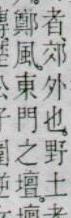 者郊外也野土者
鄭風東門之壇壇